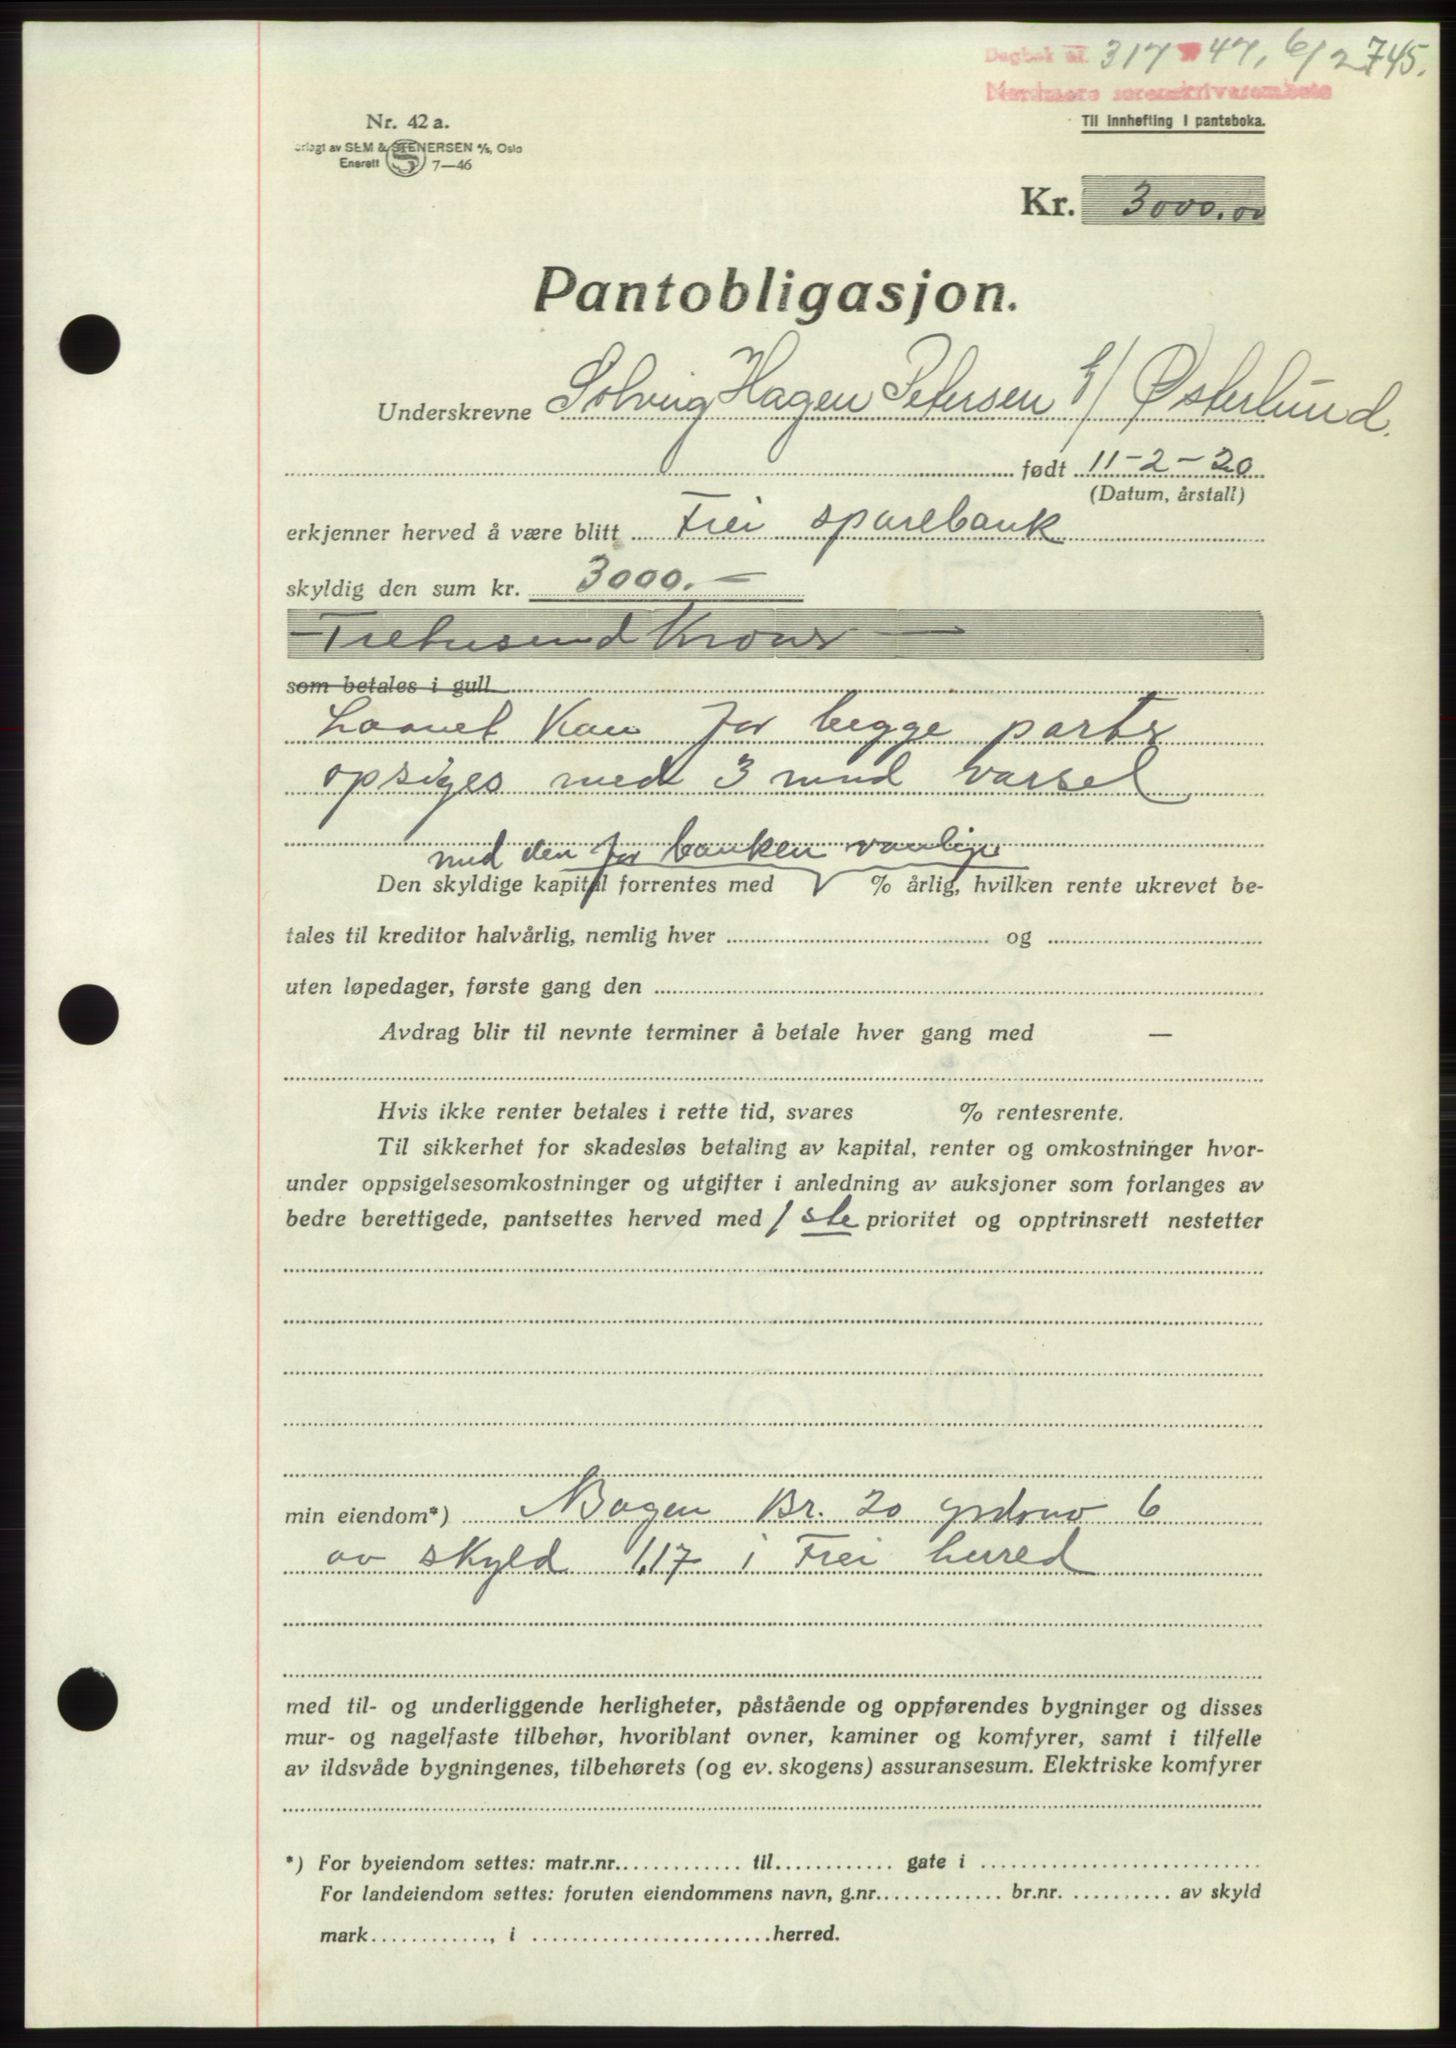 Dagbok nr. 317 - 47, 6/2 745.
Nordmøre sorenskriverembete
Til innhefting i panteboka.
Nr. 42 a.
SEM & STENERSEN A/S, Oslo
Enerett 7—46
Kr. 3000.00
Pantobligasjon.
Underskrevne Solveig Hagen Petersen f/ Østerlund.
født 11-2-20
(Datum, årstall)
erkjenner herved å være blitt Frei sparebank
skyldig den sum kr. 3000.—
— Tretusend Kroner —
som betales i gull
Laanet kan for begge parter
opsiges med 3 mnd varsel
med den for banken vanlige
Den skyldige kapital forrentes med % årlig, hvilken rente ukrevet be-
tales til kreditor halvårlig, nemlig hver og
uten løpedager, første gang den
Avdrag blir til nevnte terminer å betale hver gang med —
Hvis ikke renter betales i rette tid, svares % rentesrente.
Til sikkerhet for skadesløs betaling av kapital, renter og omkostninger hvor-
under oppsigelsesomkostninger og utgifter i anledning av auksjoner som forlanges av
bedre berettigede, pantsettes herved med 1 ste prioritet og opptrinsrett nestetter
min eiendom*) Bogen Br. 20 grdsno 6
av skyld 1.17 i Frei herred
med til- og underliggende herligheter, påstående og oppførendes bygninger og disses
mur- og nagelfaste tilbehør, hvoriblant ovner, kaminer og komfyrer, samt i tilfelle
av ildsvåde bygningenes, tilbehørets (og ev. skogens) assuransesum. Elektriske komfyrer
*) For byeiendom settes: matr.nr. til gate i
For landeiendom settes: foruten eiendommens navn, g.nr. br.nr. av skyld
mark , i herred.